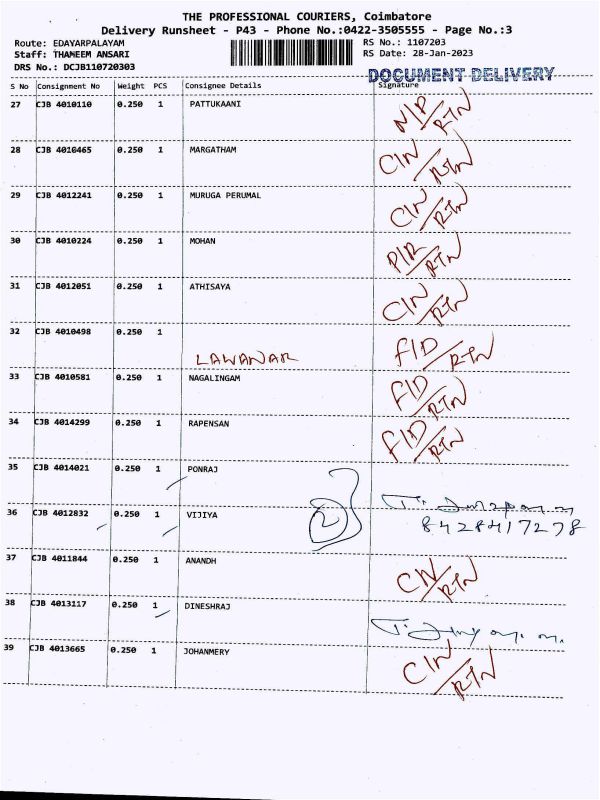 THE PROFESSIONAL COURIERS, Coimbatore
Delivery Runsheet - P43 - Phone No.:0422-3505555 - Page No.:3
Route: EDAYARPALAYAM RS No.: 1107203
Staff: THANEEM ANSARI RS Date: 28-Jan-2023
DRS No.: DCJB110720303 DOCUMENT DELIVERY
S No Consignment No Weight PCS Consignee Details Signature
27 CJB 4010110 0.250 1 PATTUKAANI N/P/RTN
28 CJB 4010465 0.250 1 MARGATHAM CIN/RTN
29 CJB 4012241 0.250 1 MURUGA PERUMAL CIN/RTN
30 CJB 4010224 0.250 1 MOHAN PIR/RTN
31 CJB 4012051 0.250 1 ATHISAYA CIN/RTN
32 CJB 4010498 0.250 1
LAWANAR FID/RTN
33 CJB 4010581 0.250 1 NAGALINGAM FID/RTN
34 CJB 4014299 0.250 1 RAPENSAN FID/RTN
35 CJB 4014021 0.250 1 PONRAJ
36 CJB 4012832 0.250 1 VIJIYA 2 8428417278
37 CJB 4011844 0.250 1 ANANDH CIN/RTN
38 CJB 4013117 0.250 1 DINESHRAJ
39 CJB 4013665 0.250 1 JOHANMERY CIN/RTN